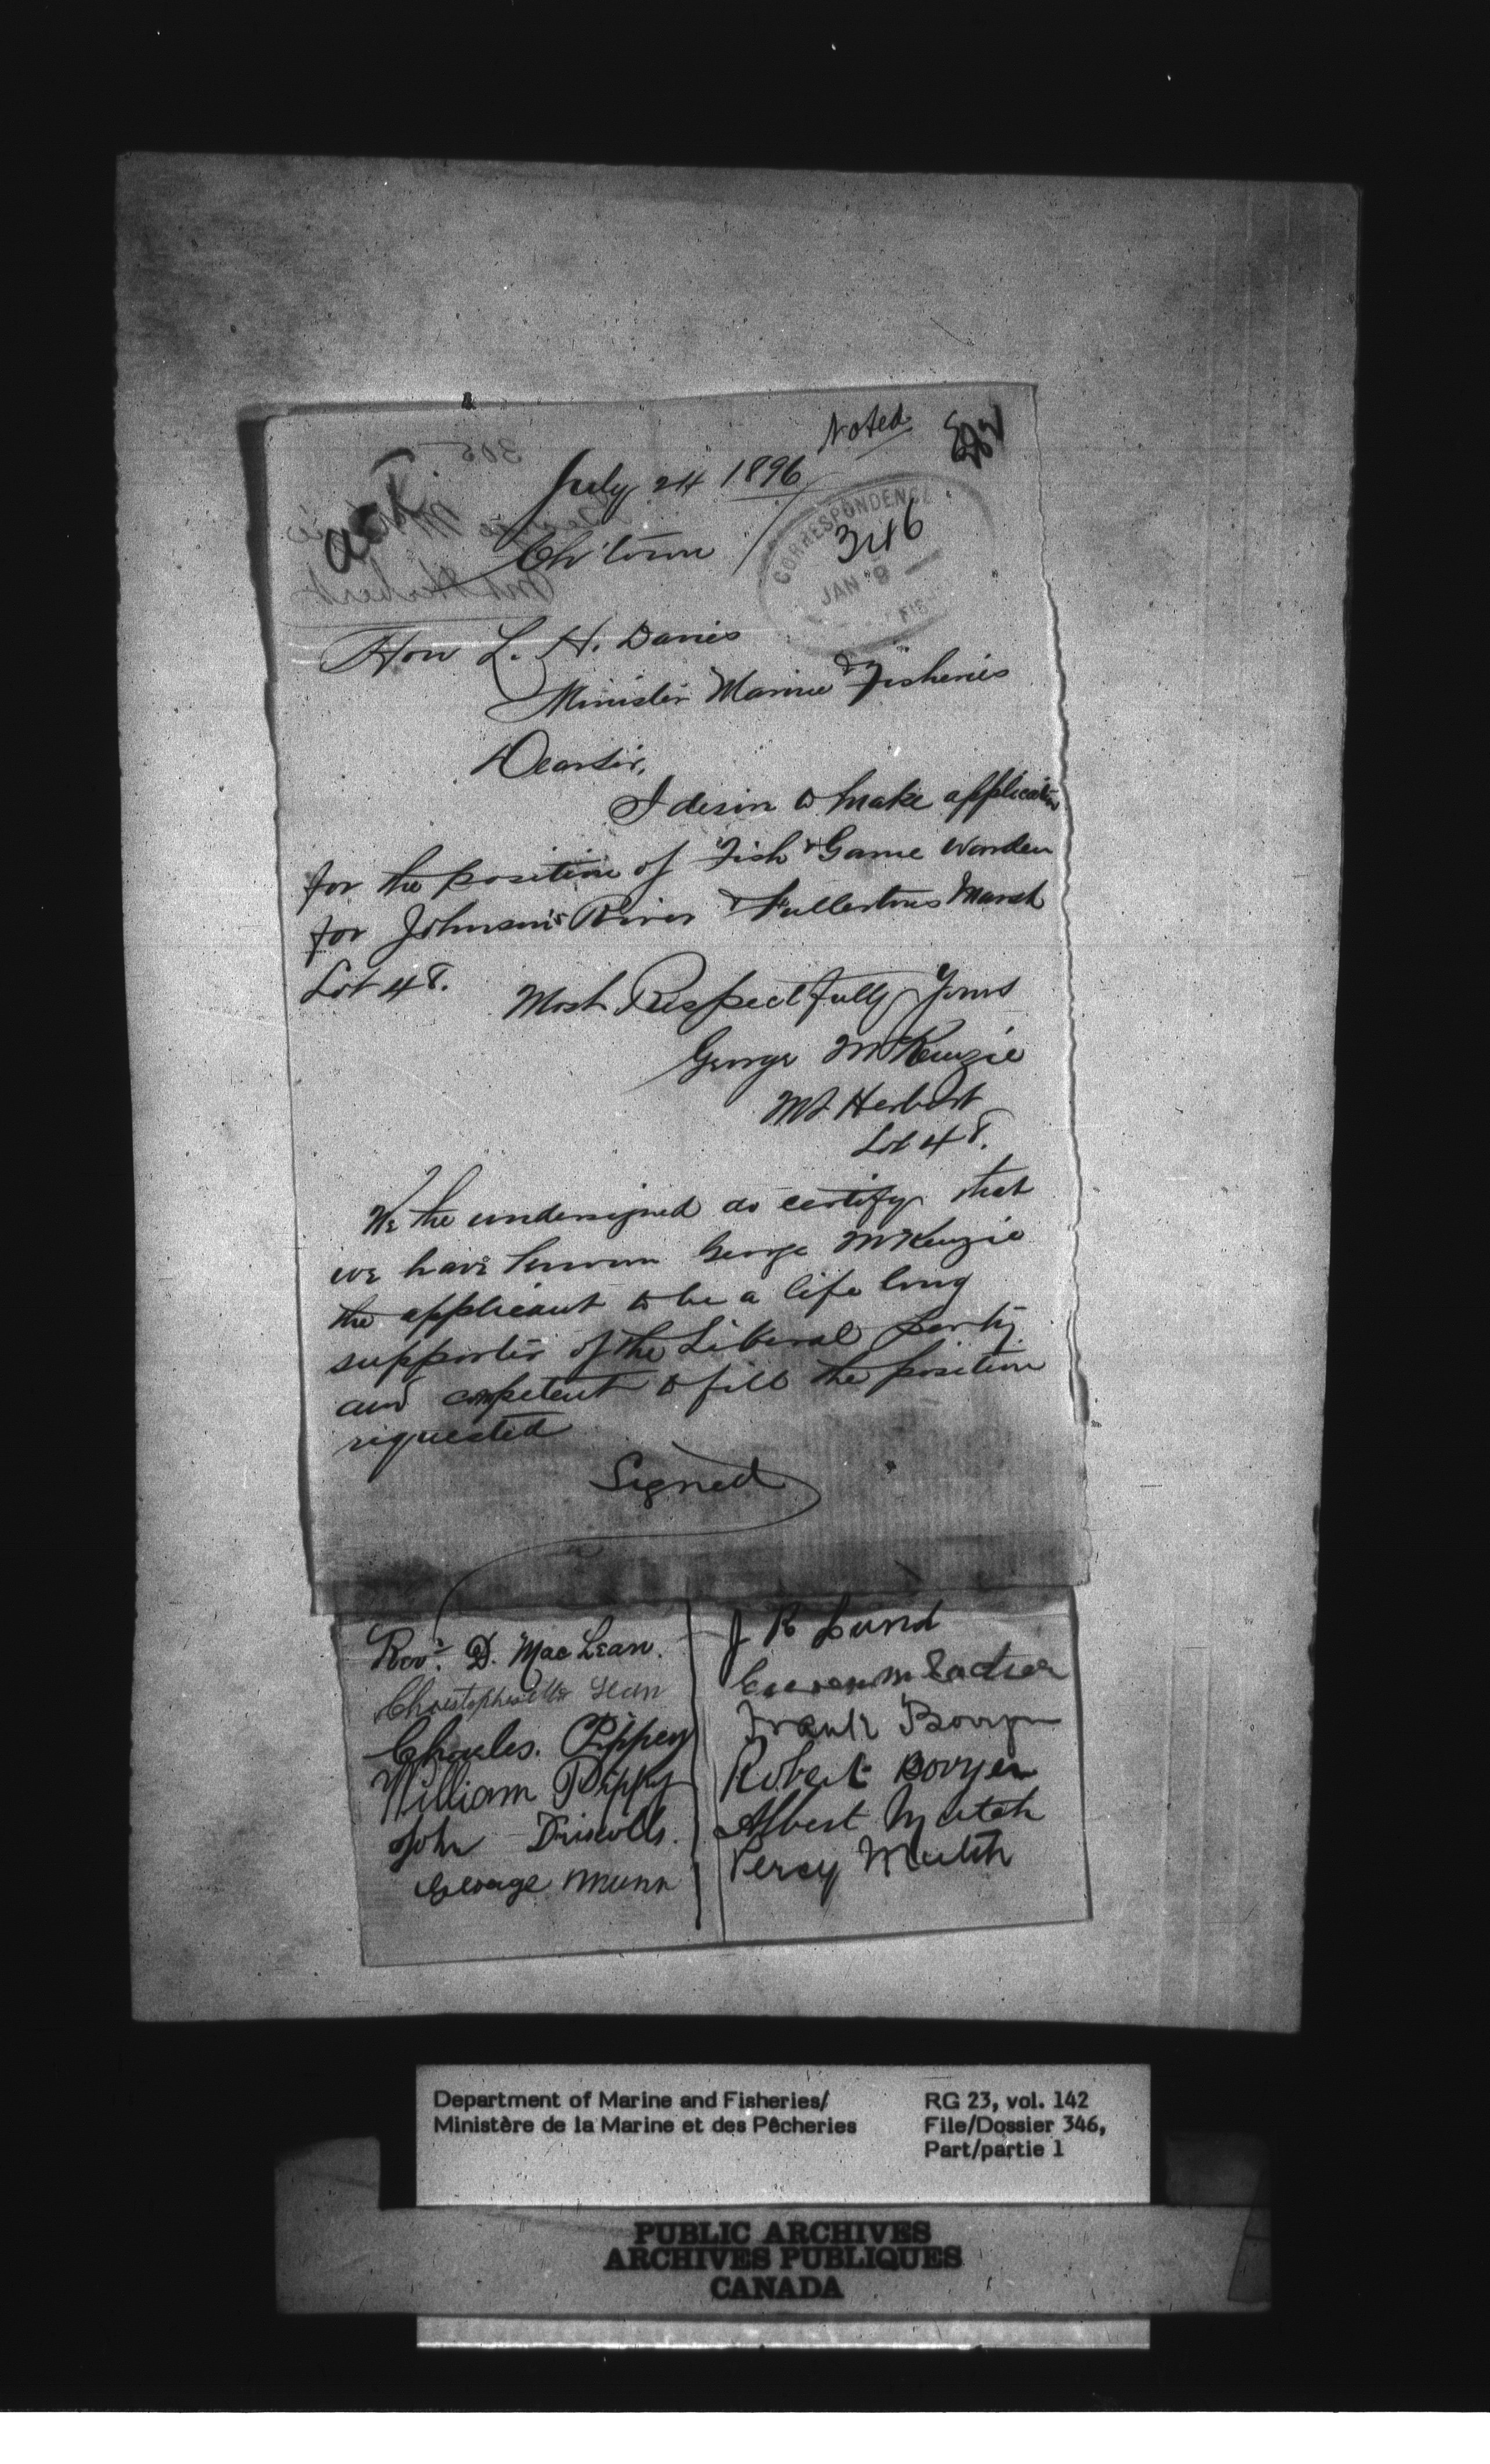 Noted
July 24 1896
ack
Ch'town
CORRESPONDENCE
346
JAN 8
FIS
Hon L. H. Davies
Minister Marine & Fisheries
Dear Sir,
I desire to make application
for the position of Fish & Game Warden
for Johnson's River & Fullertons Marsh
Lot 48.
Most Respectfully Yours
George McKenzie
Mt Herbert
Lot 48.
We the undersigned do certify that
we have known George McKenzie
the applicant to be a life long
supporter of the Liberal party
and competent to fill the position
requested
Signed
Rev'd. D. MacLean.
Lean
Charles. Pippey
William Pippy
John Driscolls.
George Munn
J R Lund
Frank Bovyer
Robert Bovyer
Albert Mutch
Percy Mutch
Department of Marine and Fisheries/
Ministère de la Marine et des Pêcheries
RG 23, vol. 142
File/Dossier 346,
Part/partie 1
PUBLIC ARCHIVES
ARCHIVES PUBLIQUES
CANADA